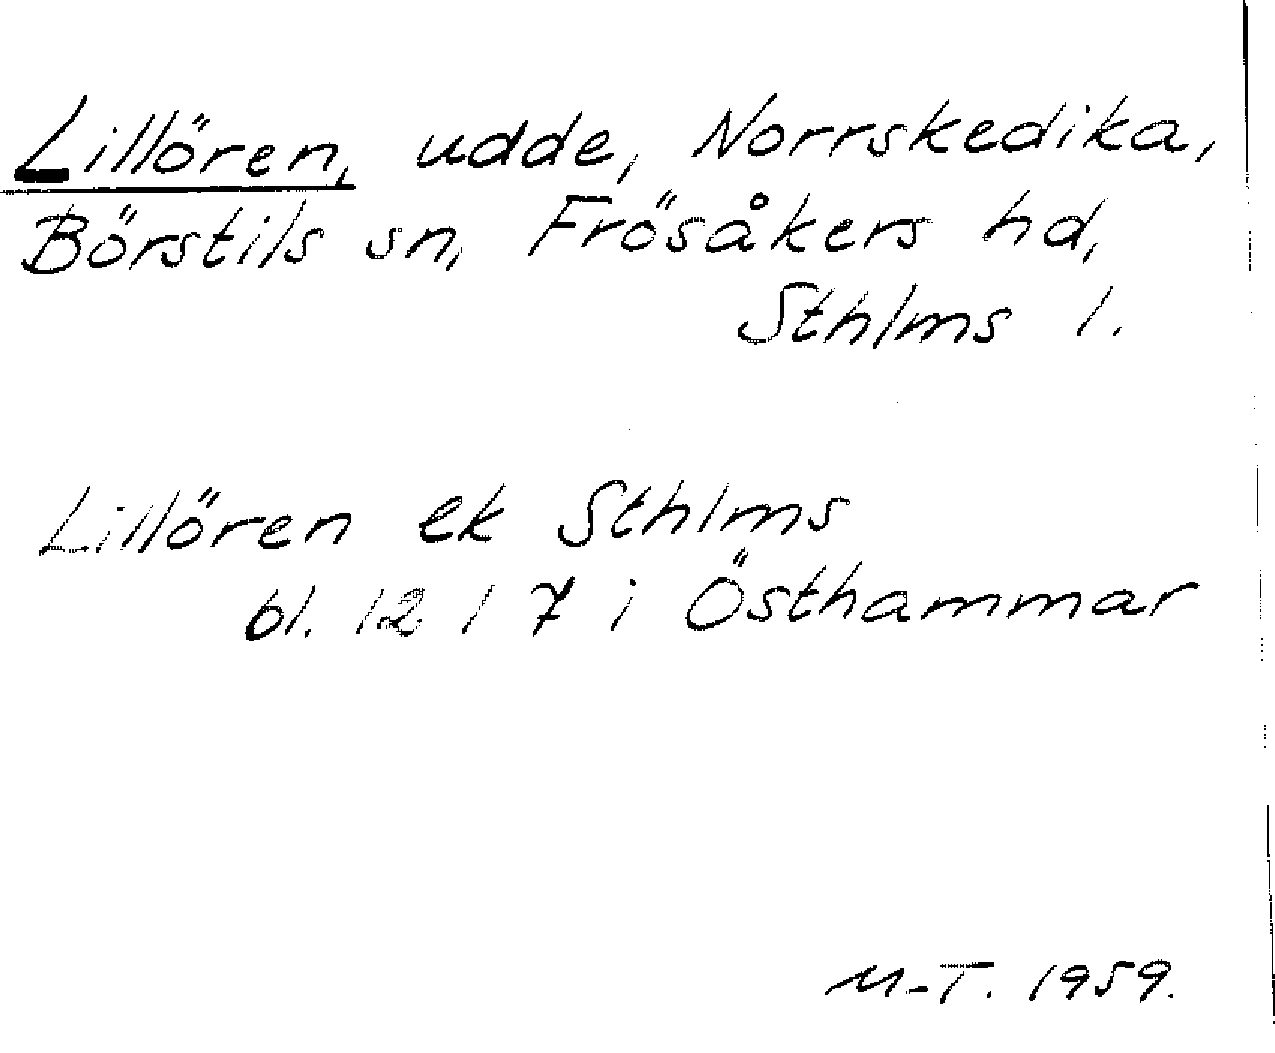 Lillören, udde, Norrskedika,
Börstils sn, Frösåkers hd,
Sthlms l.
Lillören ek Sthlms
bl. 12 I 7 i Östhammar
M-T. 1959.